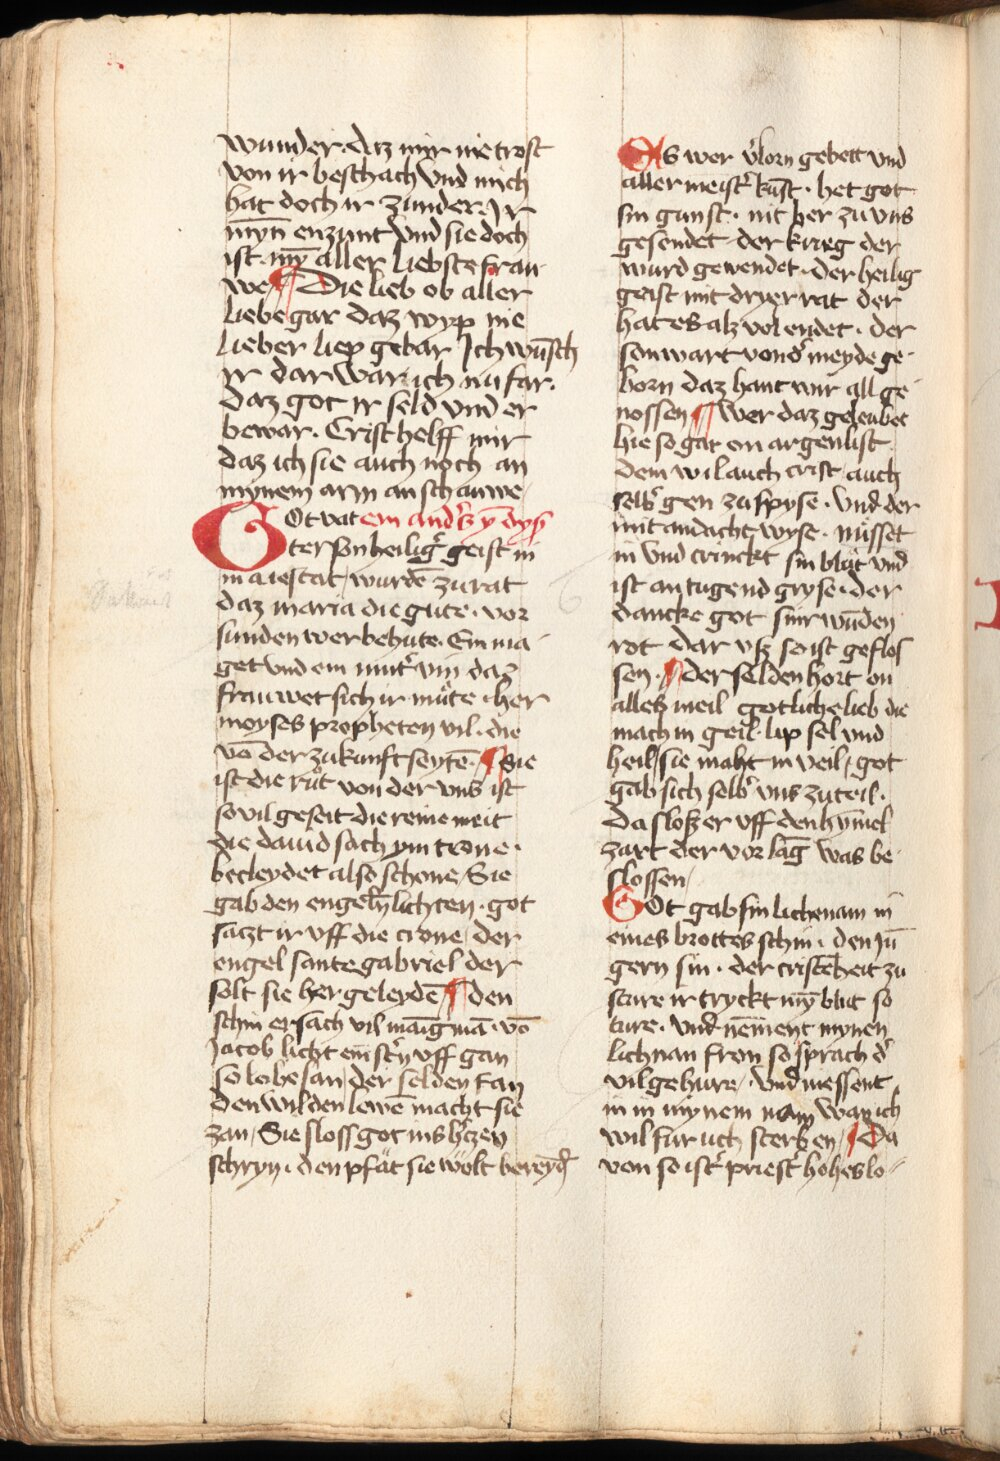 wunder · daz mir nie trost
von ir beschach vnd mich
hat doch ir zunder · Ir
myn̄ enzunt vnd sie doch
ist · my̅ aller liebste frau
we ¶ Die lieb ob aller
liebe gar daz wyp nie
lieber liep gebar Ich wūsch
ir dar war ich nu far ·
daz got ir seld vnd er
bewar · Crist helff mir
daz ich sie auch noch an
mynem arm anschauwe
GOt vat ein and's y̅ dyß
ter son heilig' geist in
maiestat / wurdē zu rat
daz maria die gute · vor
sunden wer behute · Ein ma
get vnd ein mut' vm daz
frauwet sich ir mute · her
moyses propheten vil · die
vō der zukunft seytē · ¶ Sie
ist die rut von der vns ist
so vil geseit die reine meit
die dauid sach ym trone ·
becleydet also schone / Sie
gab den engeln lichten · got
satzt ir vff die crone / der
engel sante gabriel der
solt sie her geleydē ¶ den
schin er sach vil manig mā · vō
Jacob licht ein stern vff gan
so lobesan / der selden kan
den wilden lewē macht sie
zan / Sie sloss got ins h'zen
schryn · den pfat sie wolt bereyd'
Es wer v'lorn gebett vnd
aller meist' kūst · het got
sin gunst · nit her zu vns
gesendet · der krieg der
wurd gewendet · der heilig
geist mit dryer rat der
hat es alz vol endet · der
son wart von d' meyde ge
born daz hant wir all ge
nossen ¶ wer daz geleubet
hie so gar on argenlist ·
dem wil auch crist / auch
selb' gen zu spyse · vnd der
mit andacht wyse · nusset
in vnd trinckt sin blut vnd
ist an tugend gryse · der
dancke got sinr wunden
rot dar vß so ist geflos
sen · ¶ der selden hort on
alles meil gotliche lieb die
mach in geil · lip sel vnd
heil / sie maht in veil / got
gab sich selb' vns zu teil ·
Da sloß er vff den hymel
zart der vor lāg was be
slossen /
GOt gab sin lichenam in
eines brottes schin · den Jū
gern sin · der cristēheit zu
sture ir tryckt my̅ blut so
ture · vnd nēment mynen
lichnan fron so sprach d'
vil gehure / vnd niessent
in in mynem nam Wan ich
wil fur uch sterben / ¶ Da
von so ist' priest' hohes lo